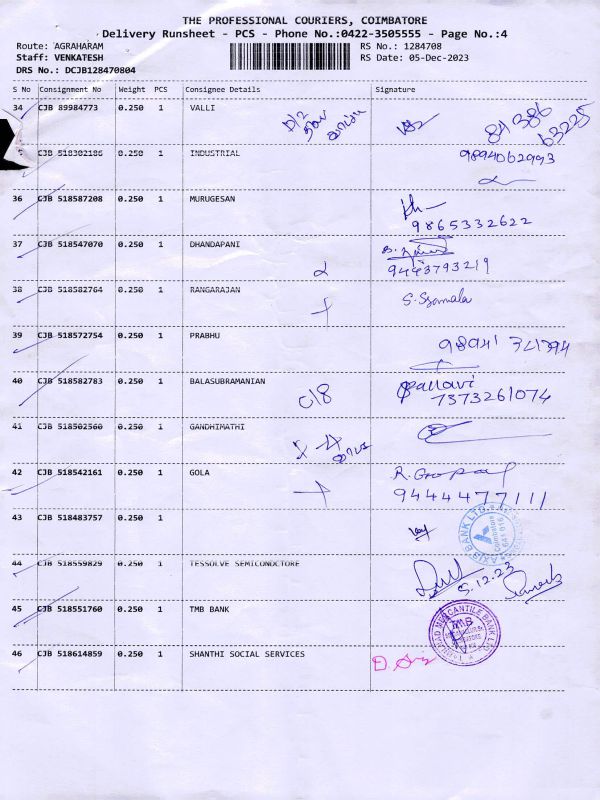 THE PROFESSIONAL COURIERS, COIMBATORE
Delivery Runsheet - PCS - Phone No.:0422-3505555 - Page No.:4
Route: AGRAHARAM RS No.: 1284708
Staff: VENKATESH RS Date: 05-Dec-2023
DRS No.: DCJB128470804
S No Consignment No Weight PCS Consignee Details Signature
34 CJB 89984773 0.250 1 VALLI D/2 84 386
63225
CJB 518302186 0.250 1 INDUSTRIAL 9894062993
36 CJB 518587208 0.250 1 MURUGESAN
9865332622
37 CJB 518547070 0.250 1 DHANDAPANI
9443793219
38 CJB 518582764 0.250 1 RANGARAJAN S. Syamala
39 CJB 518572754 0.250 1 PRABHU 98941 341394
40 CJB 518582783 0.250 1 BALASUBRAMANIAN C/8 Pallavi
7373261074
41 CJB 518502560 0.250 1 GANDHIMATHI
42 CJB 518542161 0.250 1 GOLA R. Gopal
9444477111
43 CJB 518483757 0.250 1
AXIS BANK LTD.
Coimbatore
641 016
44 CJB 518559829 0.250 1 TESSOLVE SEMICONDCTORE
5.12.23
45 CJB 518551760 0.250 1 TMB BANK
MERCANTILE BANK LTD
TMB
46 CJB 518614859 0.250 1 SHANTHI SOCIAL SERVICES